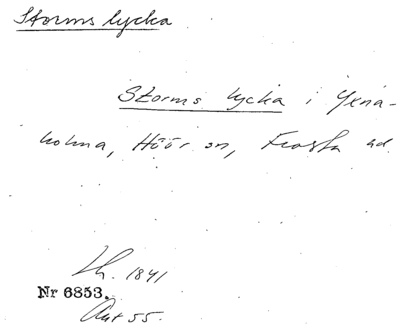 Storms lycka
Storms lycka i Yxna-
holma, Höör sn, Frosta hd
Lh. 1841
Nr 6853.
Akt 55.